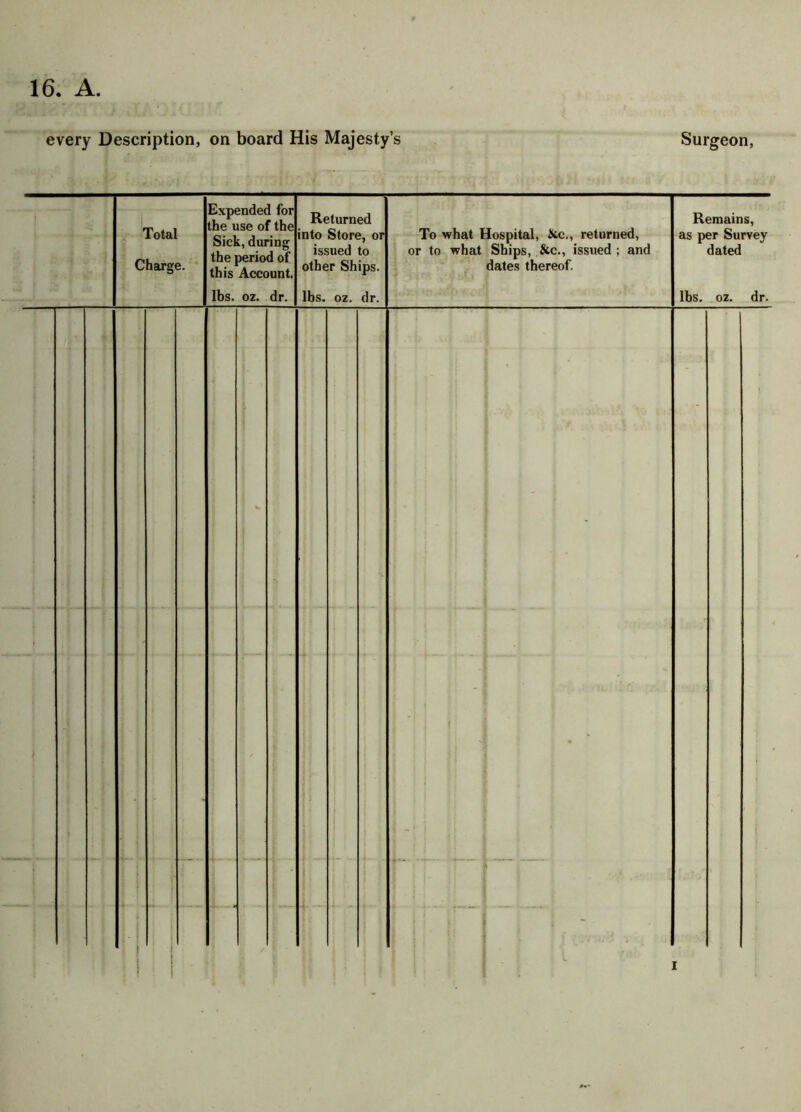 16. A.
every Description, on board His Majesty's Surgeon,
Total
Charge.
Expended for
the use of the
Sick, during
the period of
this Account.
lbs. oz. dr.
Returned
into Store, or
issued to
other Ships.
lbs. oz. dr.
To what Hospital, &c., returned,
or to what Ships, &c., issued ; and
dates thereof.
Remains,
as per Survey
dated
lbs. oz. dr.
I